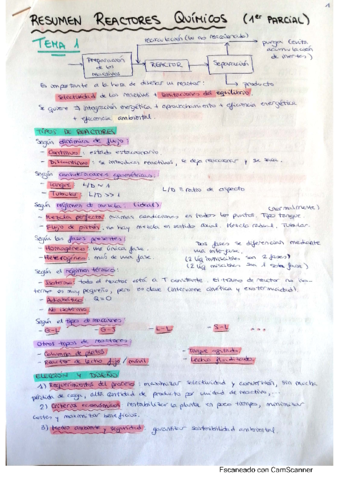 1
RESUMEN REACTORES QUÍMICOS (1er PARCIAL)
TEMA 1
recirculación (lo no reaccionado)
purga (evita acumulación de inertes)
Preparación de los reactivos
REACTOR
Separación
producto
Es importante a la hora de diseñar un reactor:
selectividad de los reactivos + limitaciones del equilibrio
Se quiere → integración energética + aprovechamiento + eficiencia energética
+ eficiencia ambiental
TIPOS DE REACTORES
Según dinámica de flujo:
- Continuo: estado estacionario
- Discontinuo: se introduce reactivo, se deja reaccionar y se saca.
Según características geométricas:
- Tanque L/D ≈ 1
- Tubular L/D >> 1
L/D = ratio de aspecto
Según régimen de mezcla (ideal)
(normalmente)
- Mezcla perfecta: mismas condiciones en todos los puntos. Tipo tanque
- Flujo de pistón: no hay mezcla en sentido axial. Mezcla radial. Tubular.
Según las fases presentes:
- Homogéneo: una única fase
- Heterogéneo: más de una fase
Las fases se diferencian mediante una interfase.
(2 líq inmiscibles son 2 fases)
(2 líq miscibles son 1 sola fase)
Según el régimen térmico:
- Isotermo: todo el reactor está a T constante.
- Adiabático Q=0
- No isotermo
Según el tipo de reacciones:
- G-G
- G-S
- L-L
- S-L
Otros tipos de reactores:
- Columna de platos
- Tanque agitado
- Reactor de lecho fijo / móvil
- Lecho fluidizado
ELECCIÓN Y DISEÑO
1) Requerimientos del proceso: maximizar selectividad y conversión, sin mucha
pérdida de carga, alta cantidad de producto por unidad de reactivo, ...
2) Criterios económicos: rentabilizar la planta en poco tiempo, minimizar
costes y maximizar beneficios.
3) Medio ambiente y seguridad: garantizar sostenibilidad ambiental.
Escaneado con CamScanner